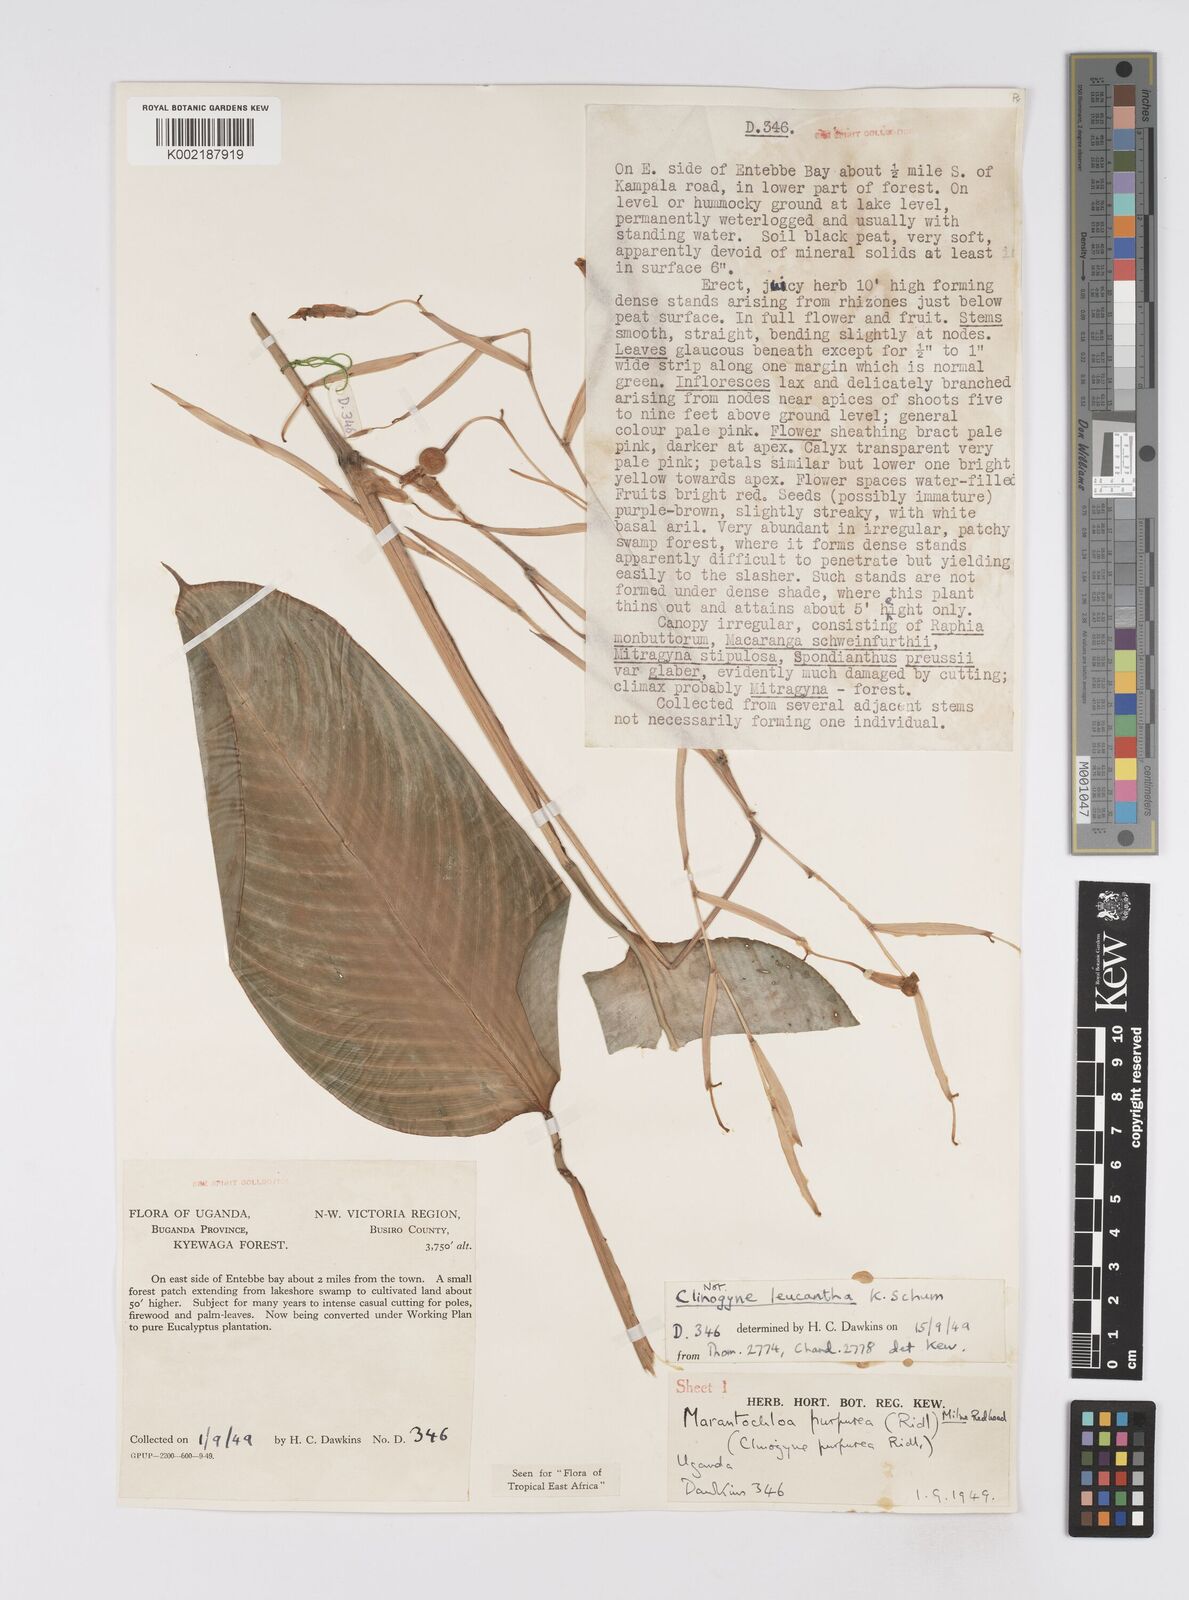 ROYAL BOTANIC GARDENS KEW
K002187919
D.346.
SEE SPIRIT COLLECTION
On E. side of Entebbe Bay about ½ mile S. of
Kampala road, in lower part of forest. On
level or hummocky ground at lake level,
permanently weterlogged and usually with
standing water. Soil black peat, very soft,
apparently devoid of mineral solids at least in
in surface 6".
Erect, juicy herb 10' high forming
dense stands arising from rhizones just below
peat surface. In full flower and fruit. Stems
smooth, straight, bending slightly at nodes.
Leaves glaucous beneath except for ½" to 1"
wide strip along one margin which is normal
green. Infloresces lax and delicately branched
arising from nodes near apices of shoots five
to nine feet above ground level; general
colour pale pink. Flower sheathing bract pale
pink, darker at apex. Calyx transparent very
pale pink; petals similar but lower one bright
yellow towards apex. Flower spaces water-filled
Fruits bright red. Seeds (possibly immature)
purple-brown, slightly streaky, with white
basal aril. Very abundant in irregular, patchy
swamp forest, where it forms dense stands
apparently difficult to penetrate but yielding
easily to the slasher. Such stands are not
formed under dense shade, where this plant
thins out and attains about 5' height only.
Canopy irregular, consisting of Raphia
monbuttorum, Macaranga schweinfurthii,
Mitragyna stipulosa, Spondianthus preussii
var glaber, evidently much damaged by cutting;
climax probably Mitragyna - forest.
Collected from several adjacent stems
not necessarily forming one individual.
D.346
SEE SPIRIT COLLECTION
FLORA OF UGANDA, N-W. VICTORIA REGION,
BUGANDA PROVINCE, BUSIRO COUNTY,
KYEWAGA FOREST. 3,750' alt.
On east side of Entebbe bay about 2 miles from the town. A small
forest patch extending from lakeshore swamp to cultivated land about
50' higher. Subject for many years to intense casual cutting for poles,
firewood and palm-leaves. Now being converted under Working Plan
to pure Eucalyptus plantation.
Collected on 1/9/49 by H. C. Dawkins No. D. 346
GPUP—2200—600—9-49.
Seen for "Flora of
Tropical East Africa"
Not.
Clinogyne leucantha K. Schum
D. 346 determined by H. C. Dawkins on 15/9/49
from Thom. 2774, Chand. 2778 det Kew.
Sheet 1
HERB. HORT. BOT. REG. KEW.
Marantochloa purpurea (Ridl) Milne Redhead
(Clinogyne purpurea Ridl.)
Uganda
Dawkins 346
1.9.1949.
Density
Don Williams
M001047
centimeters
Royal Botanic Gardens
Kew
0 1 2 3 4 5 6 7 8 9 10
cm
copyright reserved